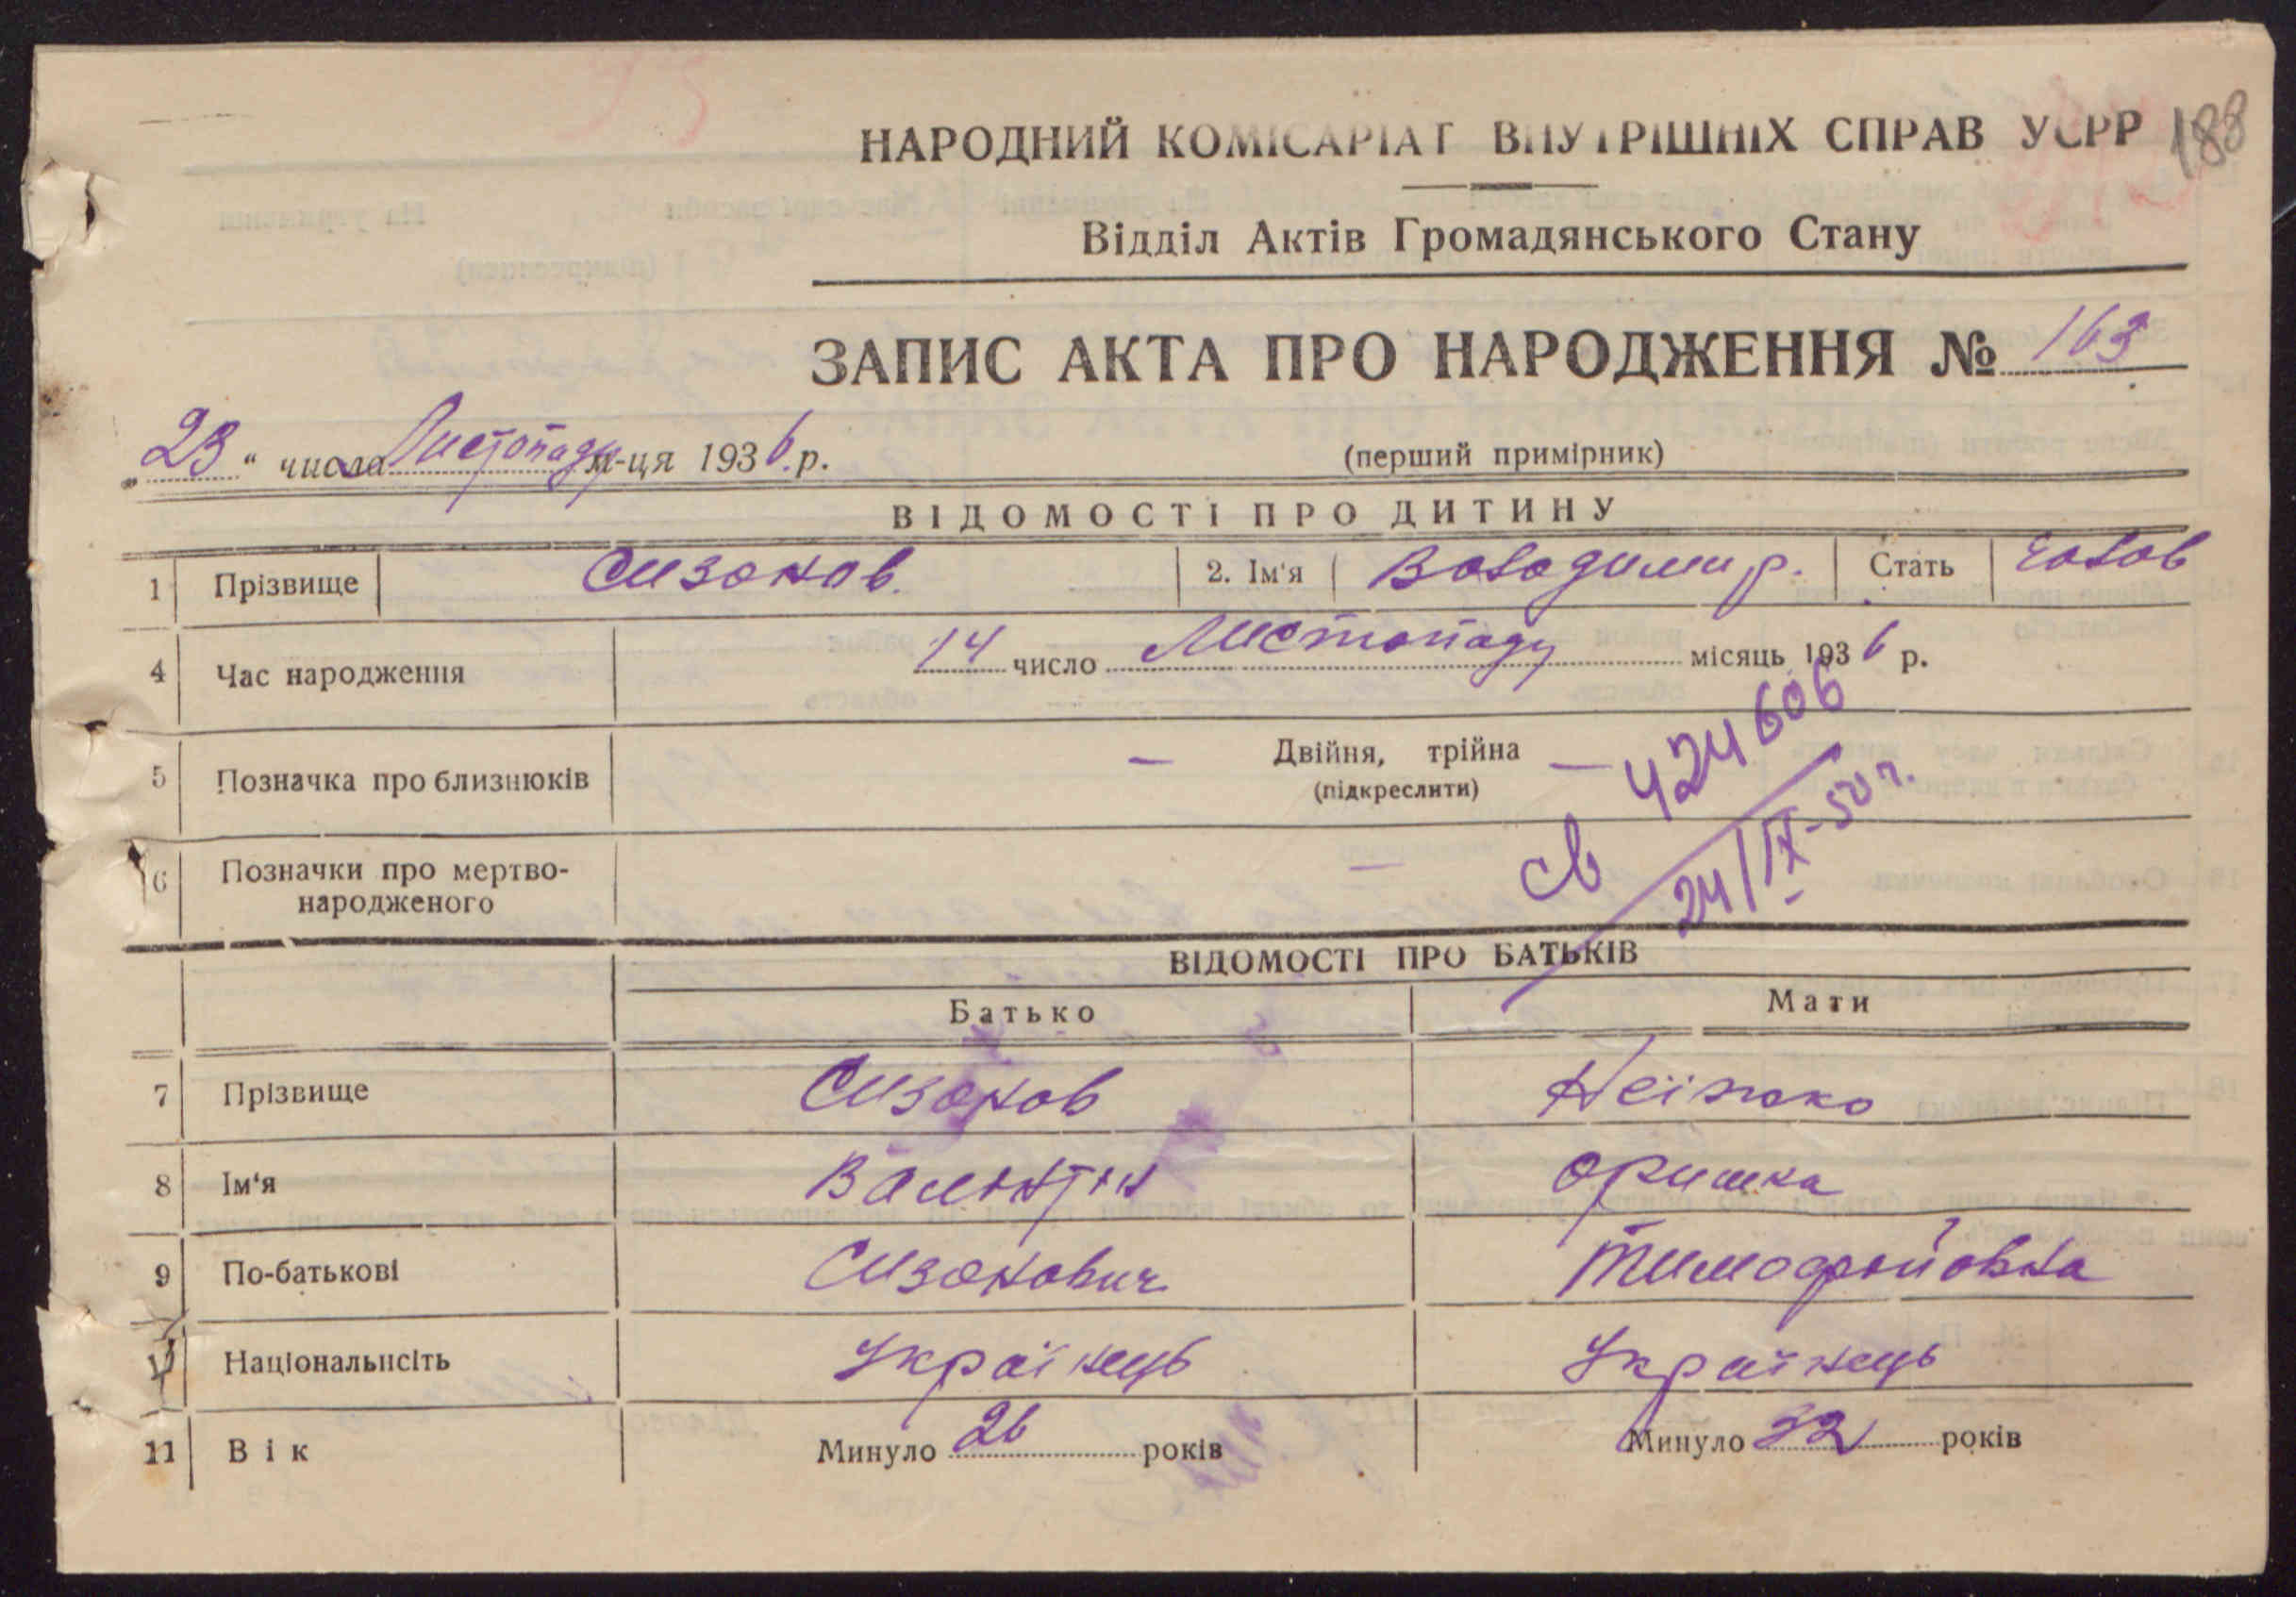 188
НАРОДНИЙ КОМІСАРІАТ ВНУТРІШНІХ СПРАВ УСРР
Відділ Актів Громадянського Стану
ЗАПИС АКТА ПРО НАРОДЖЕННЯ № 163
„23“ числа Листопаду м-ця 1936 р. (перший примірник)
ВІДОМОСТІ ПРО ДИТИНУ
1 Прізвище Сизонов. 2. Ім'я Володимир. Стать Чолов
4 Час народження 14 число Листопаду місяць 1936 р.
5 Позначка про близнюків — Двійня, трійна —
(підкреслити)
св 424606
24/IX-50 г.
6 Позначки про мертво-
народженого —
ВІДОМОСТІ ПРО БАТЬКІВ
Батько Мати
7 Прізвище Сизонов
8 Ім'я Валентин Оришка
9 По-батькові Сизонович Тимофійовна
Національнсіть Українець Українець
11 Вік Минуло 26 років Минуло 32 років